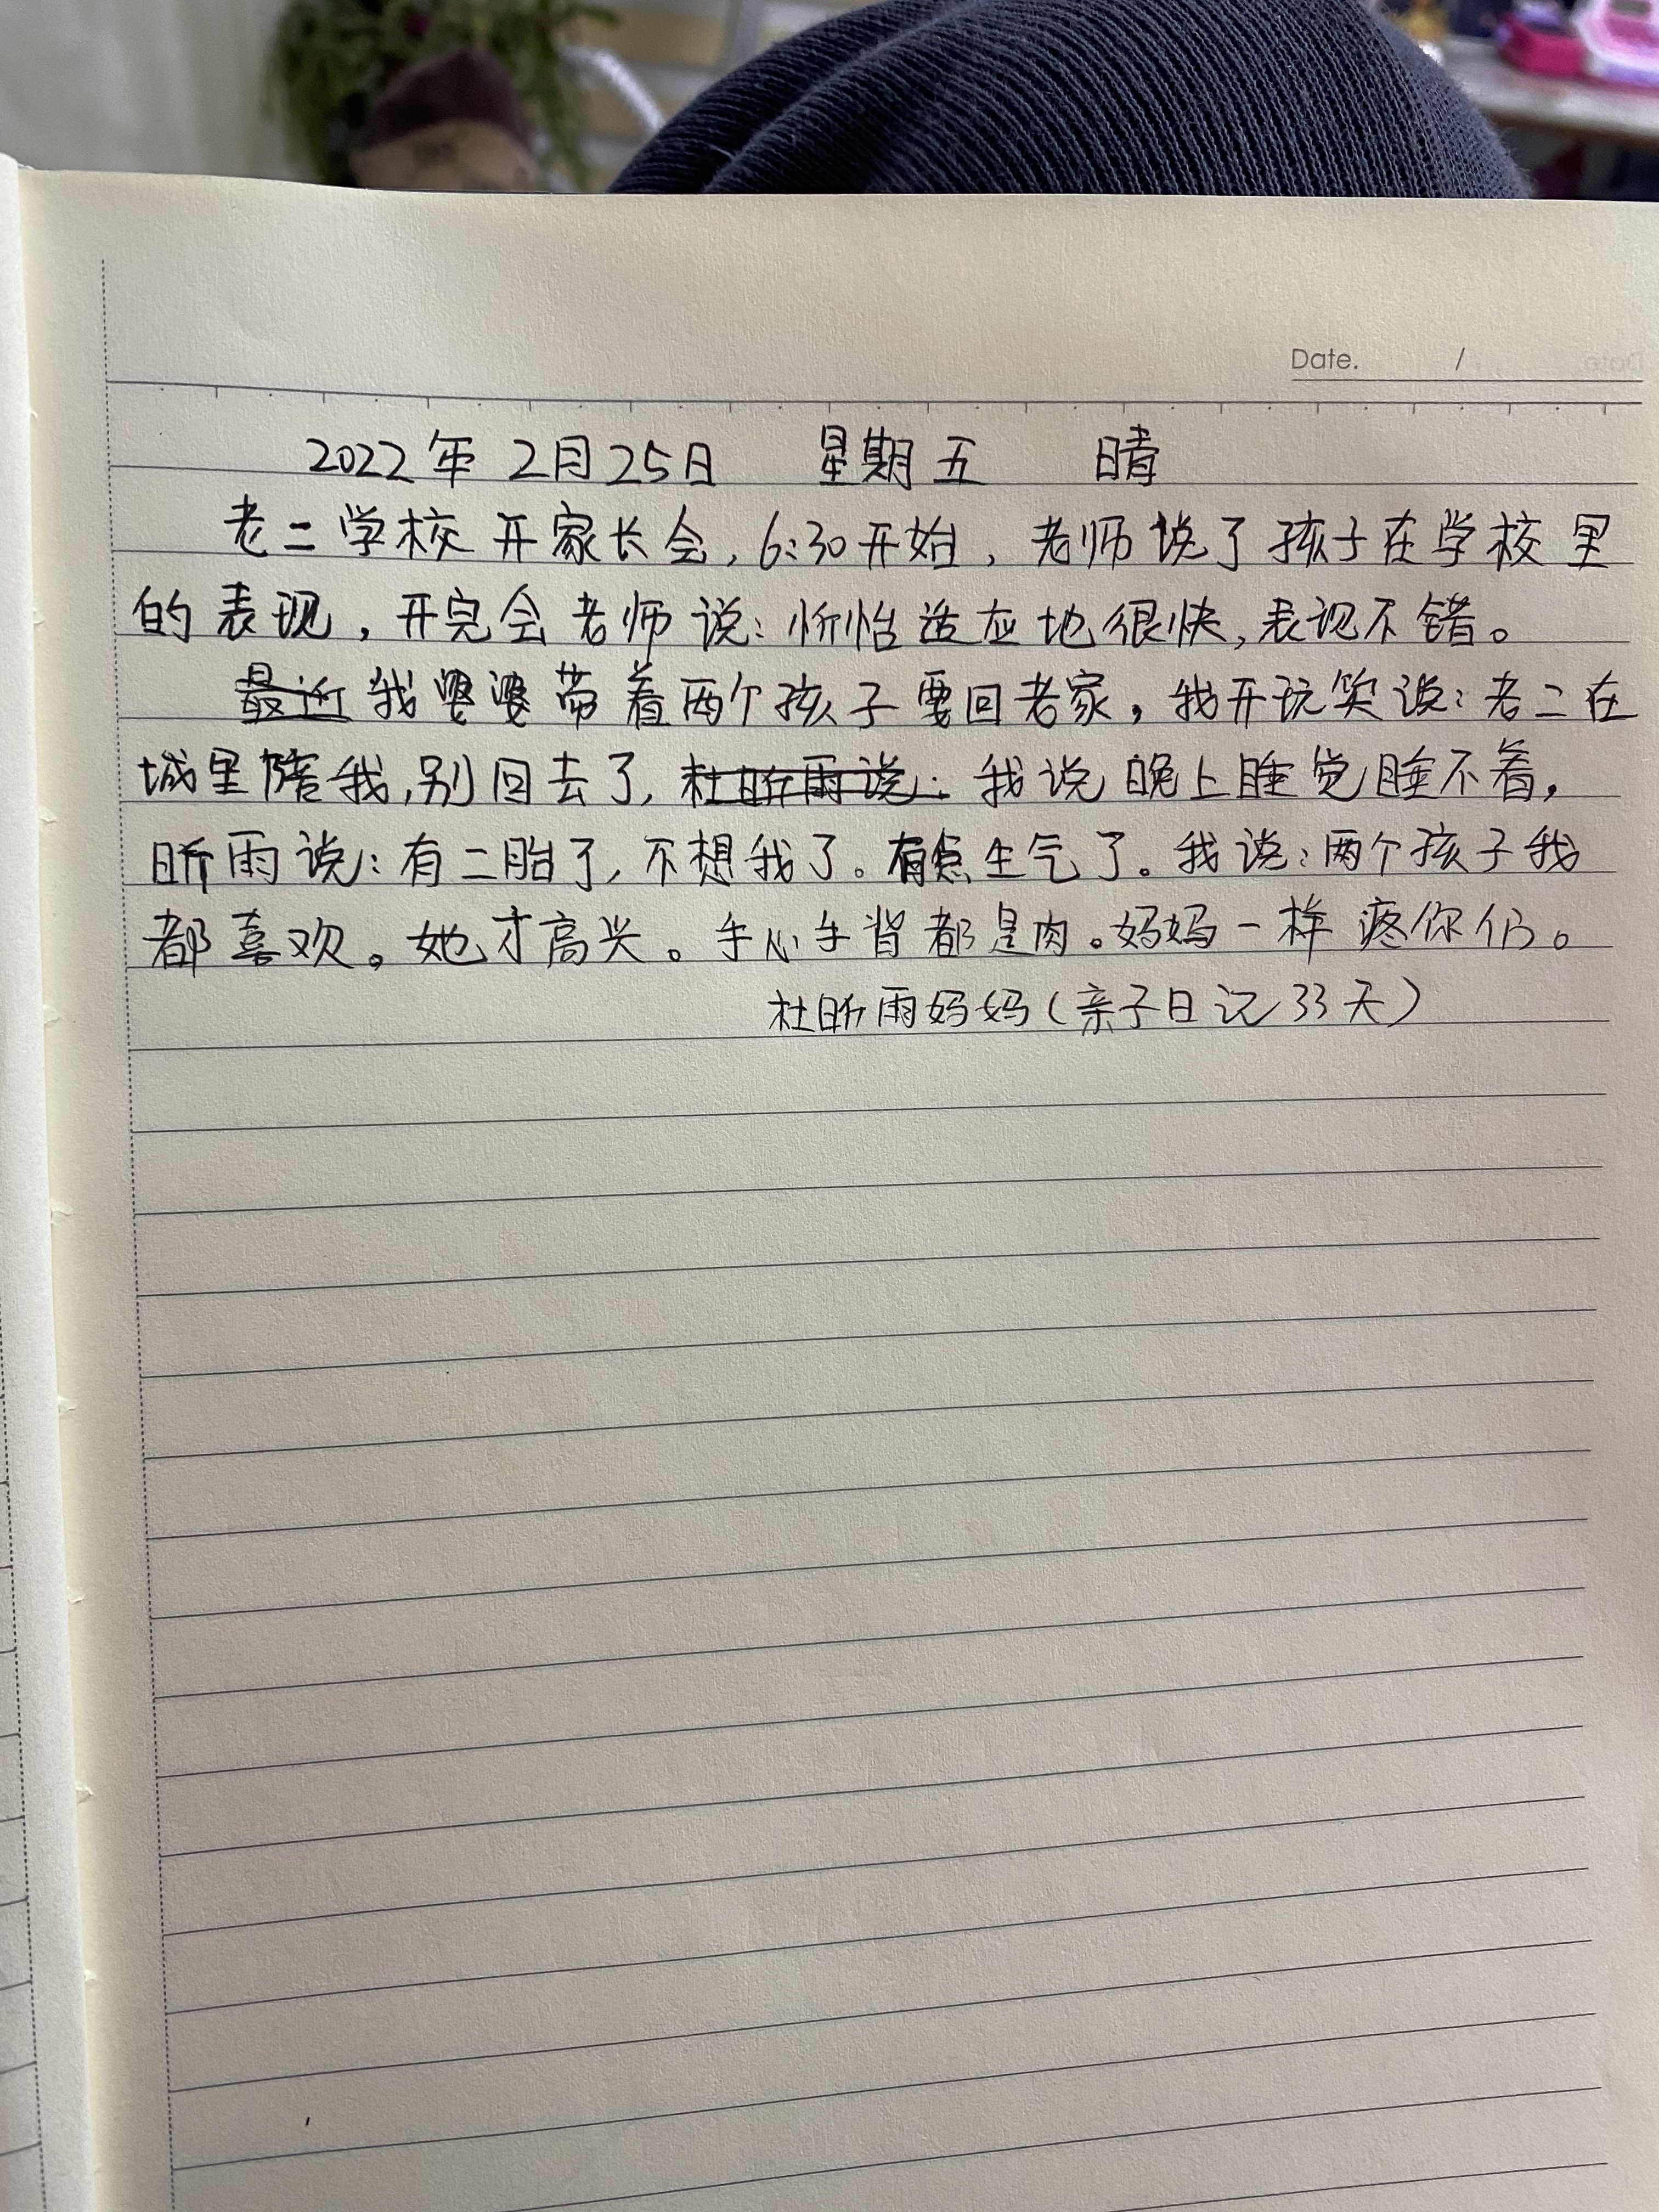 Date. /
2022年 2月25日 星期五 晴
老二学校开家长会,6:30开始,老师说了孩子在学校里
的表现,开完会老师说:忻怡适应地很快,表现不错。
最近我婆婆带着两个孩子要回老家,我开玩笑说:老二在
城里陪我,别回去了,杜昕雨说:我说晚上睡觉睡不着,
昕雨说:有二胎了,不想我了。有点生气了。我说:两个孩子我
都喜欢。她才高兴。手心手背都是肉。妈妈一样疼你们。
杜昕雨妈妈(亲子日记33天)